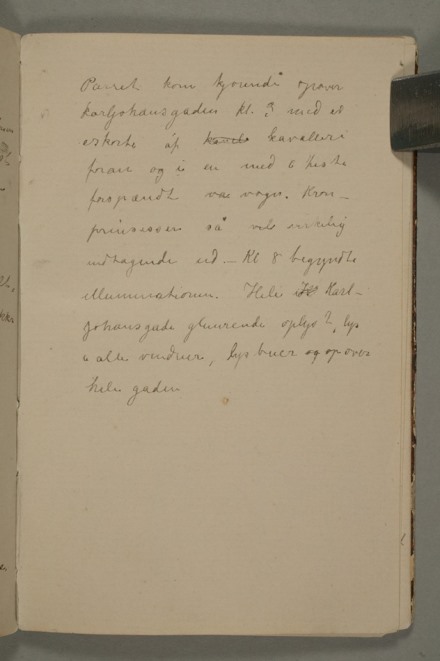 Parret kom kjørende opover
Karljohansgaden kl. 3 med et
eskorte af kavalleri
foran og i en med 6 heste
forspændt vogn. Kron-
prinsessen så virkelig
indtagende ud. – Kl 8 begyndte
illuminationen. Hele Karl-
johansgade glimrende oplyst, lys
i alle vinduer, lys buer og opover
hele gaden